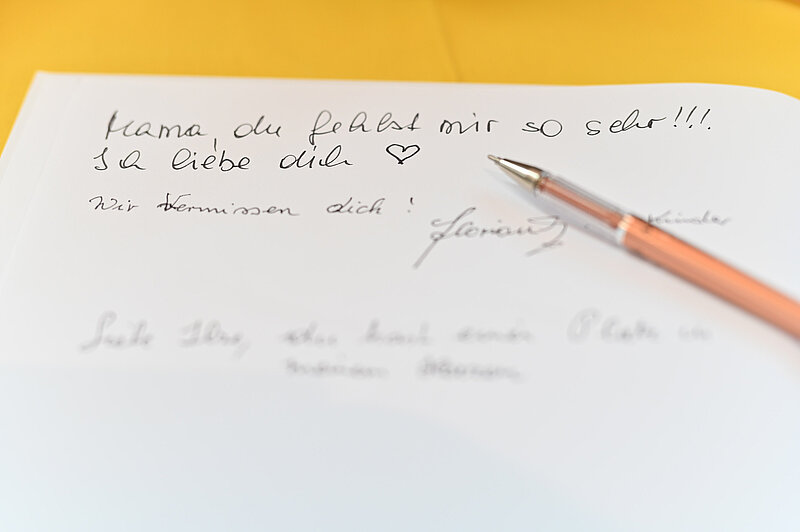 Mama, du fehlst mir so sehr!!!
Ich liebe dich ♡
Wir vermissen dich!
Florian
du hast einen Platz in
meinem Herzen